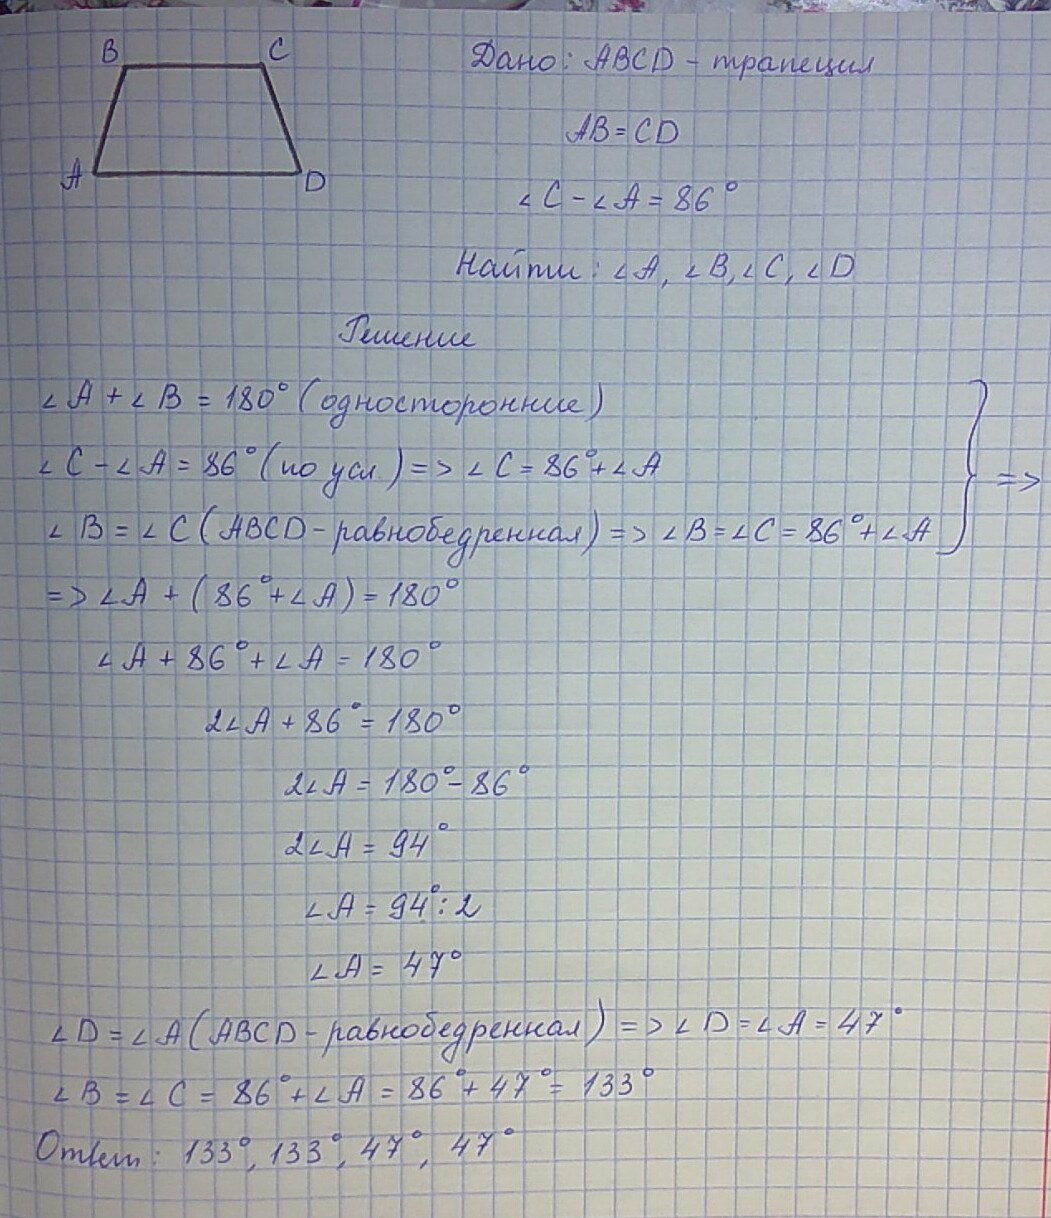 B C
A D
Дано: ABCD - трапеция
AB = CD
∠C - ∠A = 86°
Найти: ∠A, ∠B, ∠C, ∠D
Решение
∠A + ∠B = 180° (односторонние)
∠C - ∠A = 86° (по усл.) => ∠C = 86° + ∠A
∠B = ∠C (ABCD - равнобедренная) => ∠B = ∠C = 86° + ∠A } =>
=> ∠A + (86° + ∠A) = 180°
∠A + 86° + ∠A = 180°
2∠A + 86° = 180°
2∠A = 180° - 86°
2∠A = 94°
∠A = 94° : 2
∠A = 47°
∠D = ∠A (ABCD - равнобедренная) => ∠D = ∠A = 47°
∠B = ∠C = 86° + ∠A = 86° + 47° = 133°
Ответ: 133°, 133°, 47°, 47°